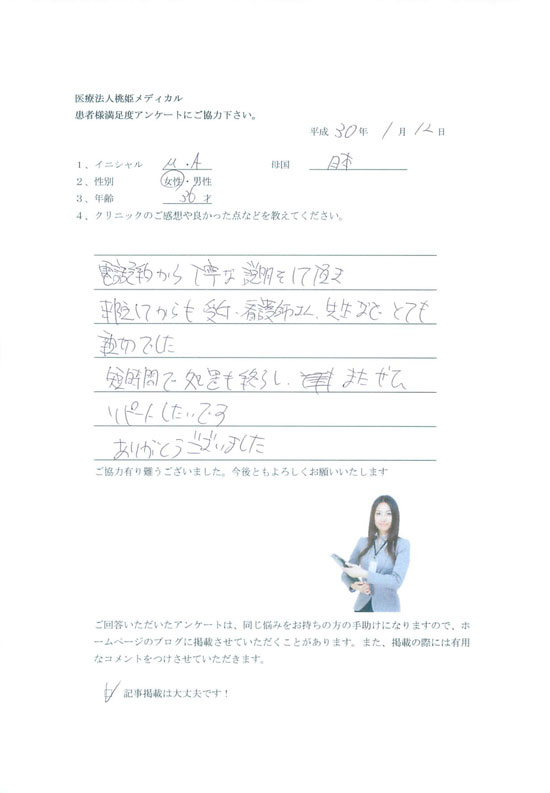 医療法人桃姫メディカル
患者様満足度アンケートにご協力下さい。
平成 30 年 1 月 12 日
1、イニシャル M・A 母国 日本
2、性別 女性・男性
3、年齢 36 才
4、クリニックのご感想や良かった点などを教えてください。
電話予約から 丁寧な 説明をして頂き
来院してからも 受付・看護師さん、先生など とても
親切でした
短時間で 処置も終了し、またぜひ
リピートしたいです
ありがとうございました
ご協力有り難うございました。今後ともよろしくお願いいたします
ご回答いただいたアンケートは、同じ悩みをお持ちの方の手助けになりますので、ホ
ームページのブログに掲載させていただくことがあります。また、掲載の際には有用
なコメントをつけさせていただきます。
記事掲載は大丈夫です！